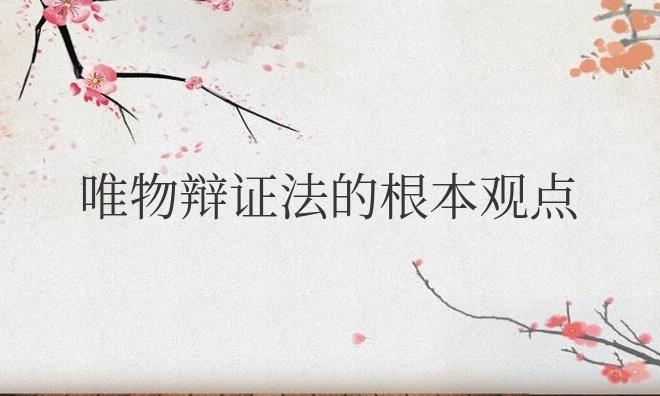 唯物辩证法的根本观点